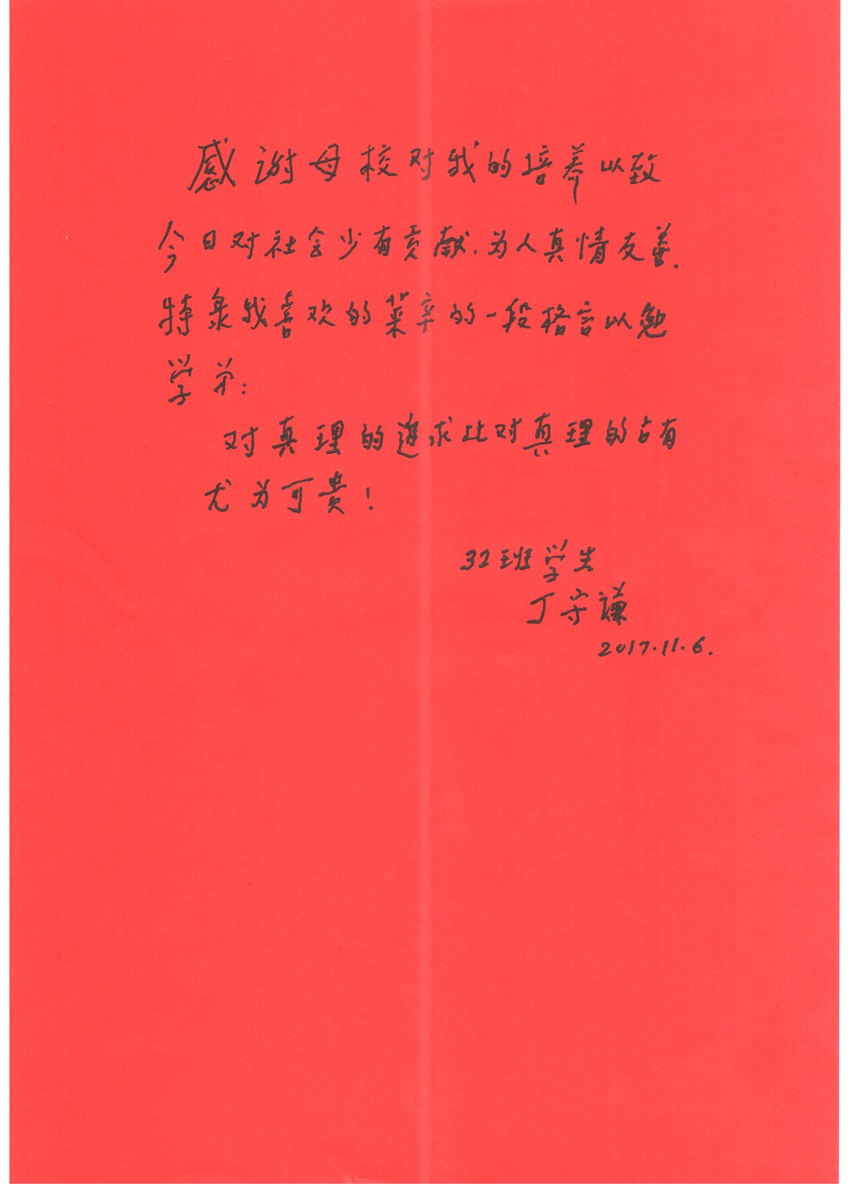 感谢母校对我的培养以致
今日对社会少有贡献.为人真情友善.
特录我喜欢的莱辛的一段格言以勉
学弟:
对真理的追求比对真理的占有
尤为可贵!
32班学生
丁守谦
2017.11.6.